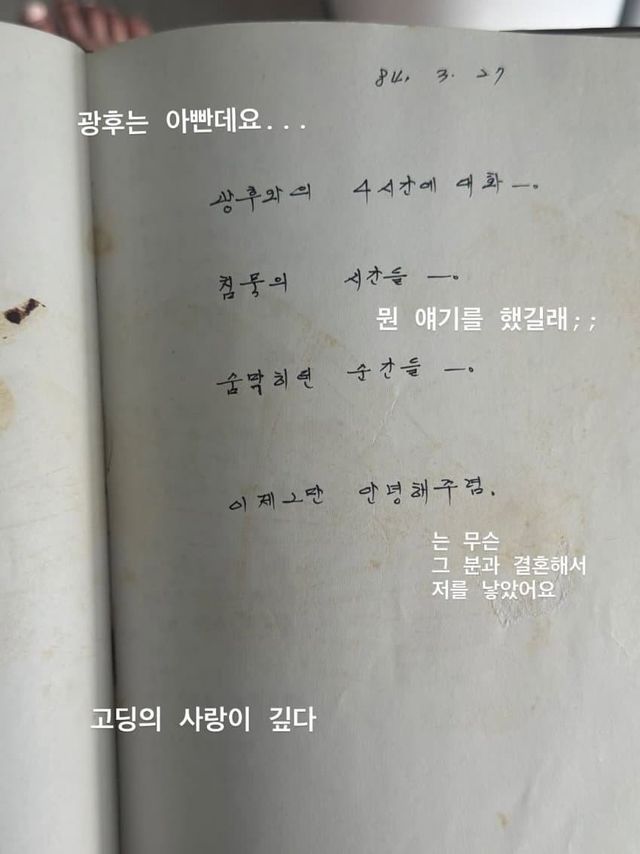 84. 3. 27
광후는 아빤데요...
광후와의 4시간에 대화 ㅡ.
침묵의 시간들 ㅡ.
뭔 얘기를 했길래;;
숨막히던 순간들 ㅡ.
이제그만 안녕해주렴.
는 무슨
그 분과 결혼해서
저를 낳았어요
고딩의 사랑이 깊다